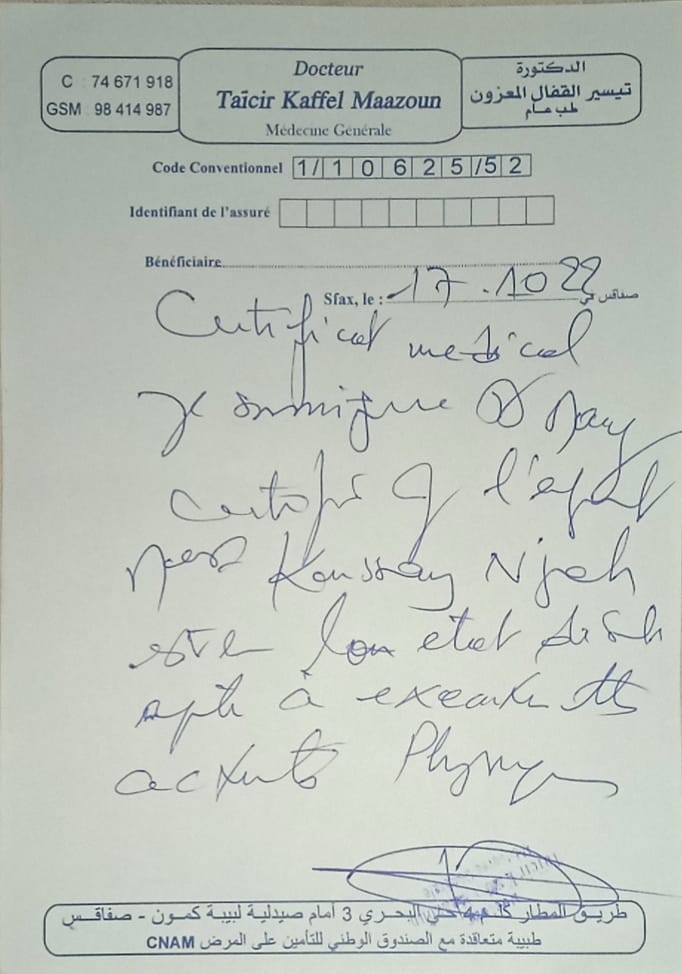 C : 74 671 918
GSM : 98 414 987
Docteur
Taïcir Kaffel Maazoun
Médecine Générale
الدكتورة
تيسير القفال المعزون
طب عام
Code Conventionnel 1/10625/52
Identifiant de l'assuré
Bénéficiaire
Sfax, le : 17.10 22 صفاقس في
Certificat medical
Je soussigné Dr
certifie q l'enfant
Koussay Njeh
est en bon etat de santé
apte à executer tts
activités Physiques
طريق المطار كلم 4 حي البحري 3 أمام صيدلية لبيبة كمون - صفاقس
طبيبة متعاقدة مع الصندوق الوطني للتأمين على المرض CNAM